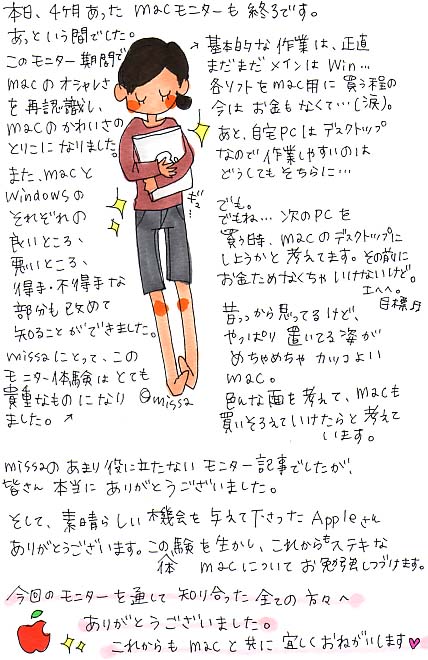 本日、4ヶ月あったmacモニターも終了です。
あっという間でした。
このモニター期間で
macのオシャレさ
を再認識し、
macのかわいさの
とりこになりました。
また、macと
Windowsの
それぞれの
良いところ、
悪いところ、
得手・不得手な
部分も改めて
知ることができました。
missaにとって、この
モニター体験はとても
貴重なものになり
ました。
ギュ
©missa
基本的な作業は、正直
まだまだメインはWin…
各ソフトをmac用に買う程の
今はお金もなくて…(涙)。
あと、自宅PCはデスクトップ
なので作業しやすいのは
どうしてもそちらに…
でも。
でもね…次のPCを
買う時、macのデスクトップに
しようかと考えてます。その前に
お金ためなくちゃいけないけど。
エヘヘ。
目標
昔っから思ってるけど、
やっぱり置いてる姿が
めちゃめちゃカッコよい
mac。
色んな面を考えて、macも
買いそろえていけたらと考えて
います。
missaのあまり役に立たないモニター記事でしたが、
皆さん本当にありがとうございました。
そして、素晴らしい機会を与えて下さったAppleさん
ありがとうございます。この体験を生かし、これからもステキな
macについてお勉強しつづけます。
今回のモニターを通して知り合った全ての方々へ
ありがとうございました。
これからもmacと共に宜しくおねがいします♥